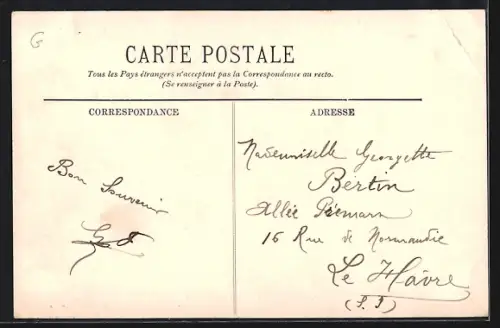 G
CARTE POSTALE
Tous les Pays étrangers n'acceptent pas la Correspondance au recto.
(Se renseigner à la Poste).
CORRESPONDANCE
Bon Souvenir
ADRESSE
Mademoiselle Georgette
Bertin
Allée
16 Rue de Normandie
Le Havre
(S. I)